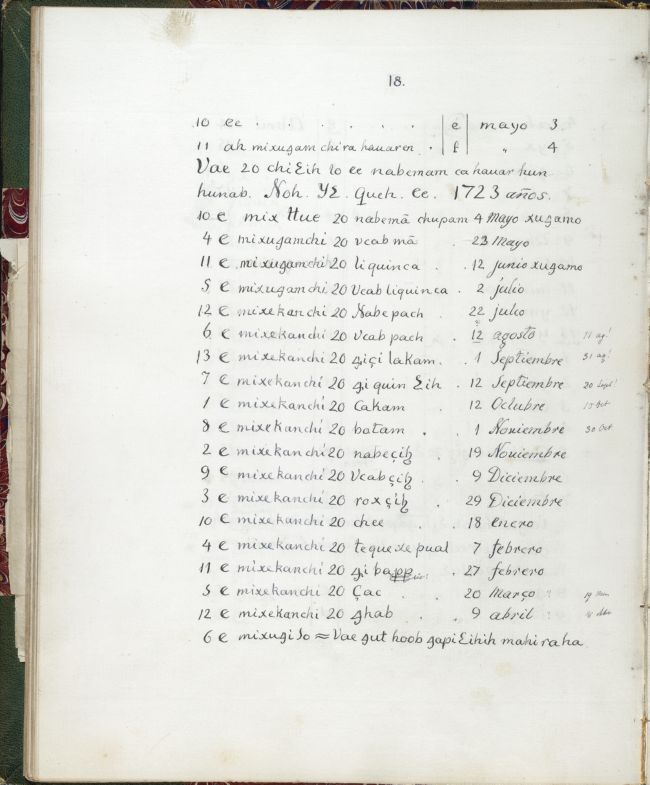 18.
10 ee . . . . . . | e | mayo 3
11 ah mixuqam chi ra hauaren . | f | " 4
Vae 20 chi Ɛih 10 ee nabemam ca hauar hun
hunab. Noh. YƐ. Queh. ee. 1723 años.
10 e mix Hue 20 nabemā chupam 4 Mayo xuqamo
4 e mixuqamchi 20 vcab mā . 23 Mayo
11 e mixuqamchi 20 liquinca . . 12 junio xuqamo
5 e mixuqamchi 20 Vcab liquinca . 2 julio
12 e mixekanchi 20 Nabe pach . 22 julio
6 e mixekanchi 20 vcab pach . 12 agosto 11 ag!
13 e mixekanchi 20 çiçi lakam. . 1 Septiembre 31 ag!
7 e mixekanchi 20 çi quin Ɛih . 12 Septiembre 20 Sept!
1 e mixekanchi 20 Cakam 12 Octubre 10 Oct
8 e mixekanchi 20 botam . . 1 Noviembre 30 Oct
2 e mixekanchi 20 nabeçih 19 Nouiembre
9 e mixekanchi 20 Vcabçih . . 9 Diciembre
3 e mixekanchi 20 rox çih . 29 Diciembre
10 e mixekanchi 20 chee . . 18 enero
4 e mixekanchi 20 tequexepual 7 febrero
11 e mixekanchi 20 . 27 febrero
5 e mixekanchi 20 Çac . . 20 Março
12 e mixekanchi 20 ghab . . 9 abril
6 e mixuqiso = Vae gut hoob gapi Ɛihih mahi raha